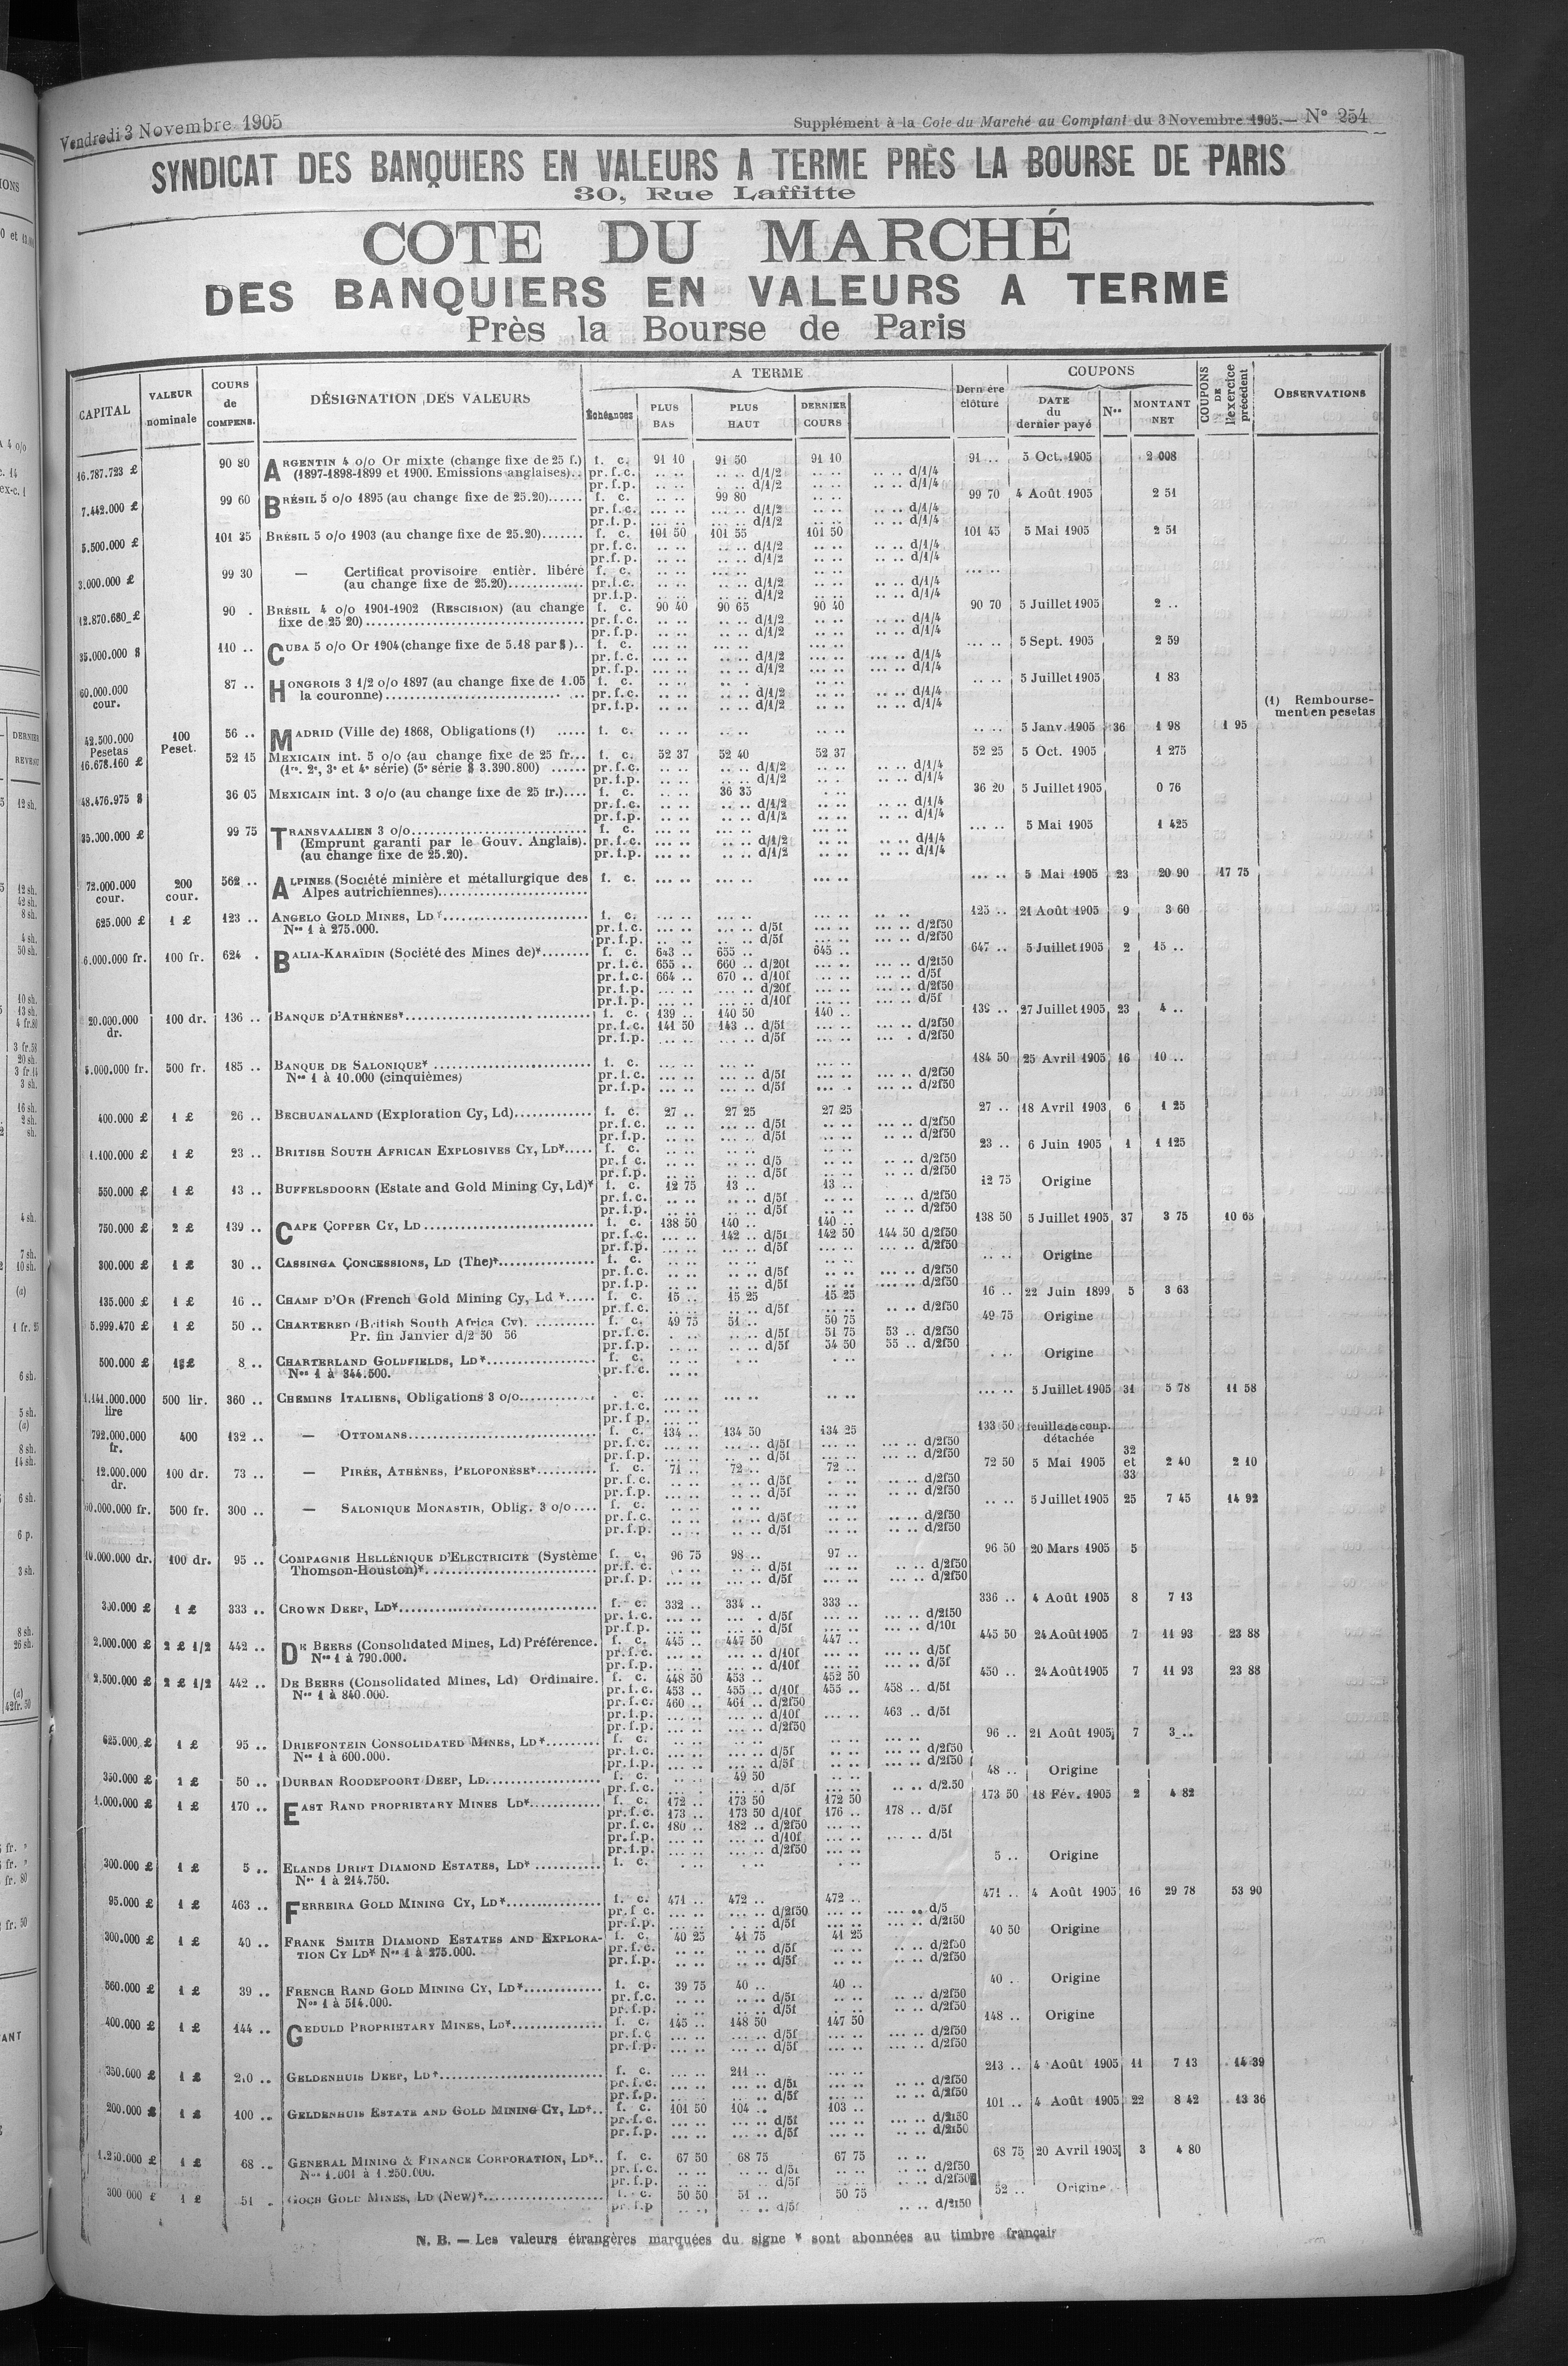 Vendredi 3 Novembre 1905
Supplément à la Cote du Marché au Comptant du 3 Novembre 1905.— N° 254
SYNDICAT DES BANQUIERS EN VALEURS A TERME PRÈS LA BOURSE DE PARIS
30, Rue Laffitte
COTE DU MARCHÉ
DES BANQUIERS EN VALEURS A TERME
Près la Bourse de Paris
CAPITAL VALEUR nominale COURS de COMPENS. DÉSIGNATION DES VALEURS A TERME Échéances PLUS BAS PLUS HAUT DERNIER COURS Dernière clôture COUPONS DATE du dernier payé Nos MONTANT NET COUPONS DE l'exercice précédent OBSERVATIONS
16.787.723 £ 90 80 ARGENTIN 4 o/o Or mixte (change fixe de 25 f.) f. c. 91 10 91 50 91 10 91 .. 5 Oct. 1905 2 008
(1897-1898-1899 et 1900. Emissions anglaises).. pr.f.c. d/1/2 d/1/4
pr.f.p. d/1/2 d/1/4
7.442.000 £ 99 60 BRÉSIL 5 o/o 1895 (au change fixe de 25.20)...... f. c. 99 80 99 70 4 Août 1905 2 51
pr.f.c. d/1/2 d/1/4
pr.f.p. d/1/2 d/1/4
5.500.000 £ 101 35 BRÉSIL 5 o/o 1903 (au change fixe de 25.20)....... f. c. 101 50 101 55 101 50 101 45 5 Mai 1905 2 51
pr.f.c. d/1/2 d/1/4
pr.f.p. d/1/2 d/1/4
3.000.000 £ 99 30 — Certificat provisoire entièr. libéré f. c.
(au change fixe de 25.20)............ pr.f.c. d/1/2 d/1/4
pr.f.p. d/1/2 d/1/4
12.870.680 £ 90 . BRÉSIL 4 o/o 1901-1902 (RESCISION) (au change f. c. 90 40 90 65 90 40 90 70 5 Juillet 1905 2 ..
fixe de 25 20)................ pr.f.c. d/1/2 d/1/4
pr.f.p. d/1/2 d/1/4
35.000.000 $ 110 .. CUBA 5 o/o Or 1904 (change fixe de 5.18 par $).. f. c. 5 Sept. 1905 2 59
pr.f.c. d/1/2 d/1/4
pr.f.p. d/1/2 d/1/4
60.000.000 cour. 87 .. HONGROIS 3 1/2 o/o 1897 (au change fixe de 1.05 f. c. 5 Juillet 1905 1 83
la couronne)................ pr.f.c. d/1/2 d/1/4
pr.f.p. d/1/2 d/1/4
(1) Remboursement en pesetas
42.500.000 Pesetas 100 Peset. 56 .. MADRID (Ville de) 1868, Obligations (1) ..... f. c. 5 Janv. 1905 36 1 98 1 95
16.678.160 £ 52 15 MEXICAIN int. 5 o/o (au change fixe de 25 fr... f. c. 52 37 52 40 52 37 52 25 5 Oct. 1905 1 275
(1re, 2e, 3e et 4e série) (5e série $ 3.390.800) ...... pr.f.c. d/1/2 d/1/4
pr.f.p. d/1/2 d/1/4
48.476.975 $ 36 05 MEXICAIN int. 3 o/o (au change fixe de 25 fr.).... f. c. 36 35 36 20 5 Juillet 1905 0 76
pr.f.c. d/1/2 d/1/4
pr.f.p. d/1/2 d/1/4
35.000.000 £ 99 75 TRANSVAALIEN 3 o/o................ f. c. 5 Mai 1905 1 425
(Emprunt garanti par le Gouv. Anglais). pr.f.c. d/1/2 d/1/4
(au change fixe de 25.20). pr.f.p. d/1/2 d/1/4
72.000.000 cour. 200 cour. 562 .. ALPINES (Société minière et métallurgique des f. c. 5 Mai 1905 23 20 90 17 75
Alpes autrichiennes)................
625.000 £ 1 £ 123 .. ANGELO GOLD MINES, LD*................ f. c. 125 .. 21 Août 1905 9 3 60
Nos 1 à 275.000. pr.f.c. d/5f d/2f50
pr.f.p. d/5f d/2f50
6.000.000 fr. 100 fr. 624 . BALIA-KARAÏDIN (Société des Mines de)*........ f. c. 643 .. 655 .. 645 .. 647 .. 5 Juillet 1905 2 15 ..
pr.f.c. 655 .. 660 .. d/20f d/2f50
pr.f.c. 664 .. 670 .. d/10f d/5f
pr.f.p. d/20f d/2f50
pr.f.p. d/10f d/5f
20.000.000 dr. 100 dr. 136 .. BANQUE D'ATHÈNES*................ f. c. 139 .. 140 50 140 .. 139 .. 27 Juillet 1905 23 4 ..
pr.f.c. 141 50 143 .. d/5f d/2f50
pr.f.p. d/5f d/2f50
5.000.000 fr. 500 fr. 185 .. BANQUE DE SALONIQUE*................ f. c. 184 50 25 Avril 1905 16 10 ..
Nos 1 à 10.000 (cinquièmes) pr.f.c. d/5f d/2f50
pr.f.p. d/5f d/2f50
400.000 £ 1 £ 26 .. BECHUANALAND (Exploration Cy, Ld)............. f. c. 27 .. 27 25 27 25 27 .. 18 Avril 1903 6 1 25
pr.f.c. d/5f d/2f50
pr.f.p. d/5f d/2f50
1.100.000 £ 1 £ 23 .. BRITISH SOUTH AFRICAN EXPLOSIVES CY, LD*..... f. c. 23 .. 6 Juin 1905 1 1 125
pr.f c. d/5 d/2f50
pr.f.p. d/5f d/2f50
550.000 £ 1 £ 13 .. BUFFELSDOORN (Estate and Gold Mining Cy, Ld)* f. c. 12 75 13 .. 13 .. 12 75 Origine
pr.f.c. d/5f d/2f50
pr.f.p. d/5f d/2f50
750.000 £ 2 £ 139 .. CAPE COPPER CY, LD................ f. c. 138 50 140 .. 140 .. 138 50 5 Juillet 1905 37 3 75 10 63
pr.f.c. 142 .. d/5f 142 50 144 50 d/2f50
pr.f.p. d/5f d/2f50
300.000 £ 1 £ 30 .. CASSINGA CONCESSIONS, LD (The)*................ f. c. Origine
pr.f.c. d/5f d/2f50
pr.f.p. d/5f d/2f50
135.000 £ 1 £ 16 .. CHAMP D'OR (French Gold Mining Cy, Ld *..... f. c. 15 .. 15 25 15 25 16 .. 22 Juin 1899 5 3 63
pr.f.c. d/5f d/2f50
5.999.470 £ 1 £ 50 .. CHARTERED (British South Africa Cy). .......... f. c. 49 75 51 .. 50 75 49 75 Origine
Pr. fin Janvier d/2 50 56 pr.f.c. d/5f 51 75 53 .. d/2f50
pr.f.p. d/5f 54 50 55 .. d/2f50
500.000 £ 8 .. CHARTERLAND GOLDFIELDS, LD*................ f. c. Origine
Nos 1 à 344.500. pr.f.c.
1.141.000.000 lire 500 lir. 360 .. CHEMINS ITALIENS, Obligations 3 o/o............. c. 5 Juillet 1905 31 5 78 11 58
pr.f.c.
pr.f p.
792.000.000 fr. 400 132 .. — OTTOMANS................ f. c. 134 .. 134 50 134 25 133 50 feuille de coup. détachée
pr.f.c. d/5f d/2f50
pr.f.p. d/5f d/2f50
12.000.000 dr. 100 dr. 73 .. — PIRÉE, ATHÈNES, PÉLOPONÈSE*.......... f. c. 71 .. 72 .. 72 .. 72 50 5 Mai 1905 32 et 33 2 40 2 10
pr.f.c. d/5f d/2f50
pr.f.p. d/5f d/2f50
60.000.000 fr. 500 fr. 300 .. — SALONIQUE MONASTIR, Oblig. 3 o/o.... f. c. 5 Juillet 1905 25 7 45 14 92
pr.f.c. d/5f d/2f50
pr.f.p. d/5f d/2f50
10.000.000 dr. 100 dr. 95 .. COMPAGNIE HELLÉNIQUE D'ELECTRICITÉ (Système f. c. 96 75 98 .. 97 .. 96 50 20 Mars 1905 5
Thomson-Houston)*................ pr.f. c. d/5f d/2f50
pr.f. p. d/5f d/2f50
300.000 £ 1 £ 333 .. CROWN DEEP, LD*................ f. c. 332 .. 334 .. 333 .. 336 .. 4 Août 1905 8 7 13
pr.f.c. d/5f d/2f50
pr.f.p. d/5f d/10f
2.000.000 £ 2 £ 1/2 442 .. DE BEERS (Consolidated Mines, Ld) Préférence. f. c. 445 .. 447 50 447 .. 445 50 24 Août 1905 7 11 93 23 88
Nos 1 à 790.000. pr.f.c. d/10f d/5f
pr.f.p. d/10f d/5f
2,500.000 £ 2 £ 1/2 442 .. DE BEERS (Consolidated Mines, Ld) Ordinaire. f. c. 448 50 453 .. 452 50 450 .. 24 Août 1905 7 11 93 23 88
Nos 1 à 840.000. pr.f.c. 453 .. 455 .. d/10f 455 .. 458 .. d/5f
pr.f.c. 460 .. 461 .. d/2f50
pr.f.p. d/10f 463 .. d/5f
pr.f.p. d/2f50
625.000 £ 1 £ 95 .. DRIEFONTEIN CONSOLIDATED MINES, LD*......... f. c. 96 .. 21 Août 1905 7 3 ..
Nos 1 à 600.000. pr.f.c. d/5f d/2f50
pr.f.p. d/5f d/2f50
350.000 £ 1 £ 50 .. DURBAN ROODEPOORT DEEP, LD................ f. c. 49 50 48 .. Origine
pr.f.c. d/5f d/2.50
1.000.000 £ 1 £ 170 .. EAST RAND PROPRIETARY MINES LD*............ f. c. 172 .. 173 50 172 50 173 50 18 Fév. 1905 2 4 82
pr.f.c. 173 .. 173 50 d/10f 176 .. 178 .. d/5f
pr.f.c. 180 .. 182 .. d/2f50
pr.f.p. d/10f d/5f
pr.f.p. d/2f50
300.000 £ 1 £ 5 .. ELANDS DRIFT DIAMOND ESTATES, LD* ........... f. c. 5 .. Origine
Nos 1 à 214.750.
95.000 £ 1 £ 463 .. FERREIRA GOLD MINING CY, LD*................ f. c. 471 .. 472 .. 472 .. 471 .. 4 Août 1905 16 29 78 53 90
pr.f c. d/2f50 d/5
pr.f.p. d/5f d/2f50
300.000 £ 1 £ 40 .. FRANK SMITH DIAMOND ESTATES AND EXPLORA- f. c. 40 25 41 75 41 25 40 50 Origine
TION CY LD* Nos 1 à 275.000. pr.f.c. d/5f d/2f50
pr.f.p. d/5f d/2f50
560.000 £ 1 £ 39 .. FRENCH RAND GOLD MINING CY, LD*............. f. c. 39 75 40 .. 40 .. 40 .. Origine
Nos 1 à 514.000. pr.f.c. d/5f d/2f50
pr.f.p. d/5f d/2f50
400.000 £ 1 £ 144 .. GEDULD PROPRIETARY MINES, LD*............... f. c. 145 .. 148 50 147 50 148 .. Origine
pr.f.c d/5f d/2f50
pr.f.p. d/5f d/2f50
350.000 £ 1 £ GELDENHUIS DEEP, LD*................ f. c. 211 .. 213 .. 4 Août 1905 11 7 13 14 39
pr.f.c. d/5f d/2f50
pr.f.p. d/5f d/2f50
200.000 £ 1 £ 100 .. GELDENHUIS ESTATE AND GOLD MINING CY, LD*.. f. c. 101 50 104 .. 103 .. 101 .. 4 Août 1905 22 8 42 13 36
pr.f.c. d/5f d/2f50
pr.f.p. d/5f d/2f50
1.250.000 £ 1 £ 68 .. GENERAL MINING & FINANCE CORPORATION, LD*.. f. c. 67 50 68 75 67 75 68 75 20 Avril 1905 3 4 80
Nos 1.001 à 1.250.000. pr.f.c. d/5f d/2f50
pr.f.p. d/5f d/2f50
300 000 £ 1 £ 51 . GOCH GOLD MINES, LD (New)*................ f. c. 50 50 51 .. 50 75 52 .. Origine
pr.f.p d/5f d/2f50
N. B. — Les valeurs étrangères marquées du signe * sont abonnées au timbre français